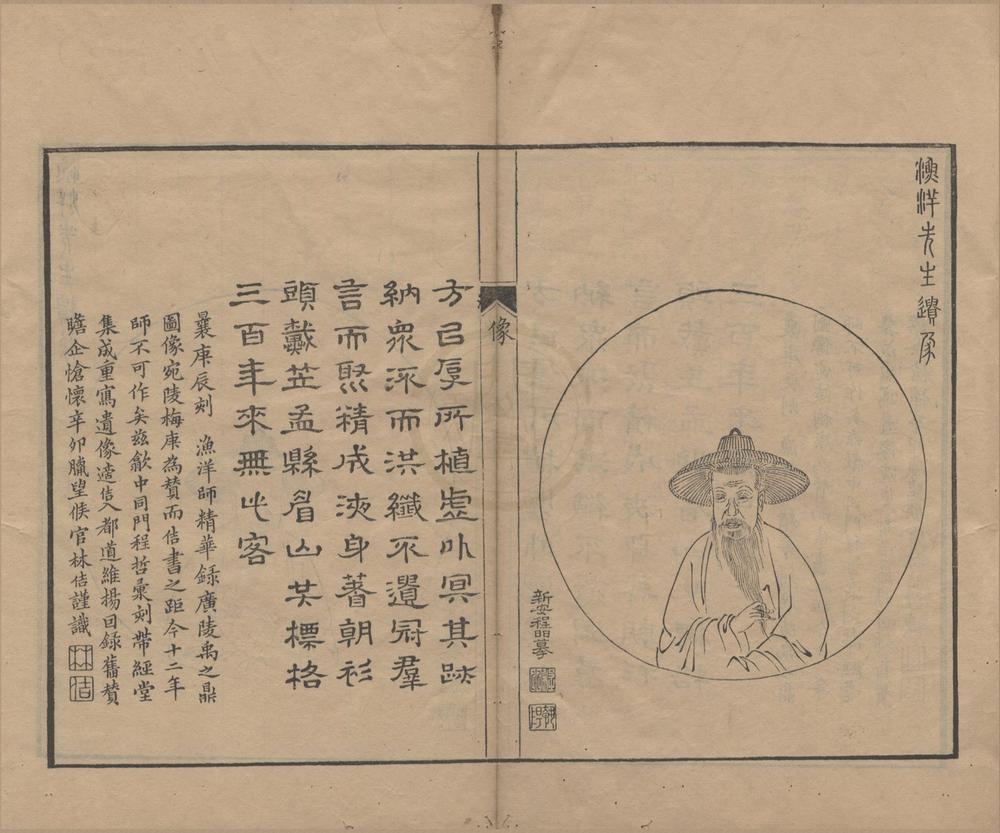 漁洋先生遺像
新安程摹
像
方㠯厚所植虛㠯冥其跡
納眾流而洪纖不遺冠羣
言而聚精成液身著朝衫
頭戴笠孟縣眉山共標格
三百年來無此客
曩庚辰刻　漁洋師精華錄廣陵禹之鼎
圖像宛陵梅庚為贊而佶書之距今十二年
師不可作矣茲歙中同門程哲彙刻帶經堂
集成重寫遺像適佶入都道維揚因錄舊贊
瞻企愴懷辛卯臘望侯官林佶謹識
林
佶